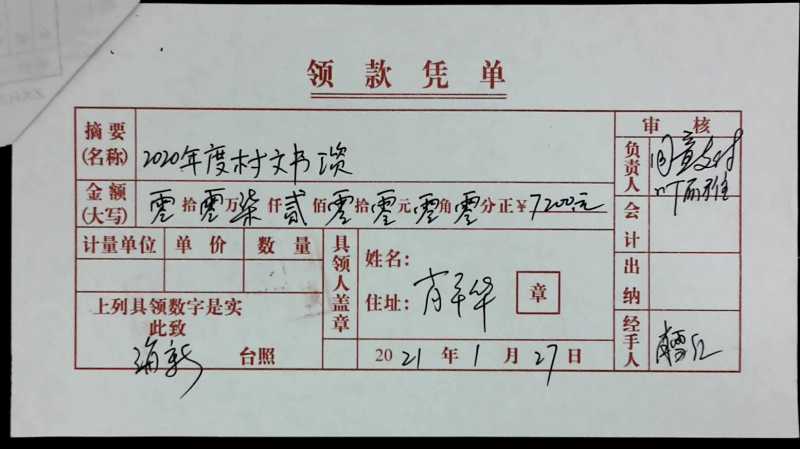 领款凭单
摘要(名称) 2020年度村文书资
审核
负责人 同意支付
叶丽雅
金额(大写) 零拾零万柒仟贰佰零拾零元零角零分正¥7200元
会计
计量单位 单价 数量
具领人盖章
姓名:
住址: 肖平华
章
出纳
上列具领数字是实
此致
台照
2021年1月27日
经手人